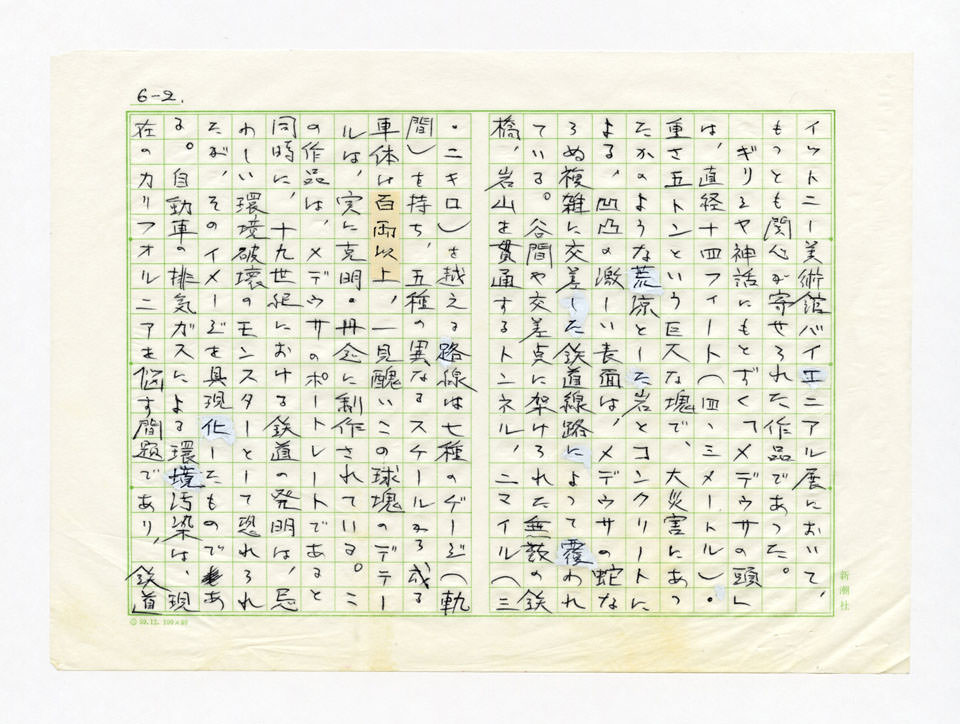 6-2.
イットニー美術館バイエニアル展において、
もっとも関心が寄せられた作品であった。
ギリシヤ神話にもとずく「メデウサの頭」
は、直径十四フィート(四、三メートル)・
重さ五トンという巨大な塊で、大災害にあっ
たかのような荒涼とした岩とコンクリートに
よる、凹凸の激しい表面は、メデウサの蛇な
らぬ複雑に交差した鉄道線路によって覆われ
ている。谷間や交差点に架けられた無数の鉄
橋、岩山を貫通するトンネル、二マイル(三
・二キロ)を越える路線は七種のゲージ(軌
間)を持ち、五種の異なるスケールから成る
車体は百両以上、一見醜いこの球塊のデテー
ルは、実に克明・丹念に制作されている。こ
の作品は、メデウサのポートレートであると
同時に、十九世紀における鉄道の発明は、忌
わしい環境破壊のモンスターとして恐れられ
たが、そのイメージを具現化したものであ
る。自動車の排気ガスによる環境汚染は、現
在のカリフオルニアを悩す問題であり、鉄道
新潮社